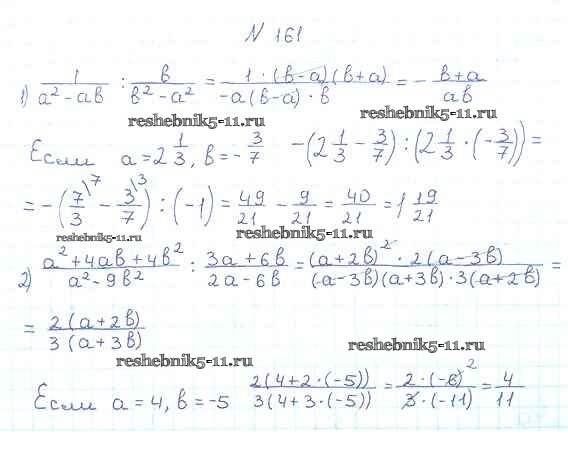 N 161
1) 1/(a² - ab) : в/(в² - a²) = 1·(в-a)(в+a)/(-a(в-a)·в) = - (в+a)/(aв)
reshebnik5-11.ru reshebnik5-11.ru
Если a = 2 1/3, в = - 3/7 -(2 1/3 - 3/7) : (2 1/3 · (-3/7)) =
= -(7/3\7 - 3/7\3) : (-1) = 49/21 - 9/21 = 40/21 = 1 19/21
reshebnik5-11.ru reshebnik5-11.ru
2) (a² + 4aв + 4в²)/(a² - 9в²) : (3a + 6в)/(2a - 6в) = (a+2в)² · 2(a-3в)/((a-3в)(a+3в)·3(a+2в)) =
= 2(a+2в)/(3(a+3в))
reshebnik5-11.ru reshebnik5-11.ru
Если a = 4, в = -5 2(4+2·(-5))/(3(4+3·(-5))) = 2·(-6)²/(3·(-11)) = 4/11